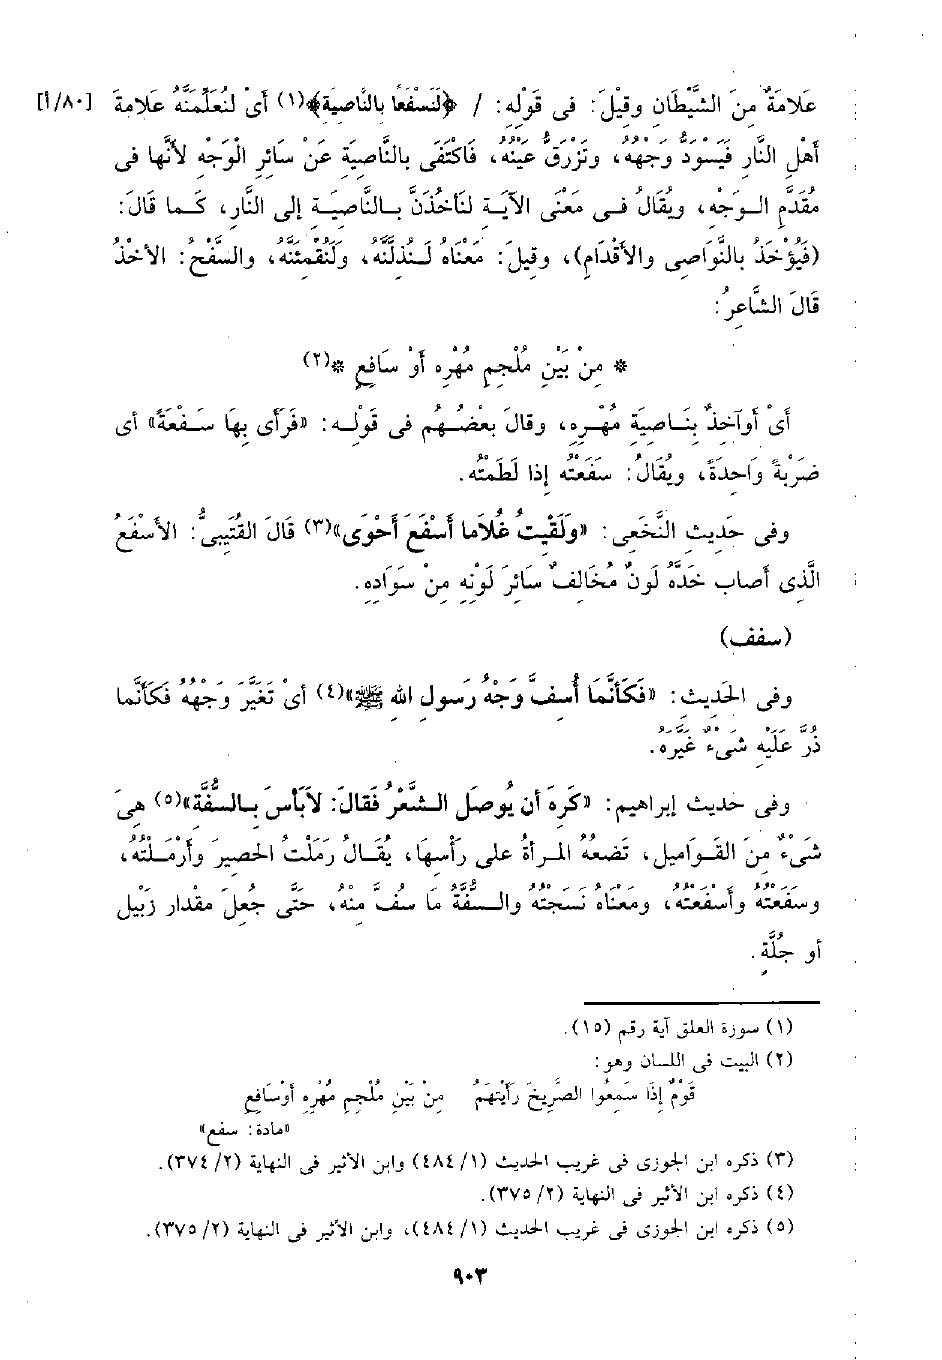 عَلامَةٌ مِنَ الشَّيْطَان وقيلَ: فى قَوْلِه: / ﴿لَنَسْفَعًا بالنَّاصِيَة﴾(١) أىْ لنُعَلِّمَنَّهُ عَلامةَ [٨٠/أ]
أهْلِ النَّار فَيَسْوَدُّ وَجْهُهُ، وَتَزْرَقُّ عَيْنُهُ، فَاكْتَفَى بالنَّاصِيَةِ عَنْ سَائِرِ الوَجْهِ لأنَّها فى
مُقَدَّمِ الوَجْهِ، ويُقَالُ فى مَعْنَى الآيَةِ لنَأخُذَنَّ بالنَّاصِيَةِ إلى النَّار، كَما قالَ:
(فَيُؤْخَذُ بالنَّوَاصِى والأقْدَامِ)، وقيلَ: مَعْنَاهُ لَنُذِلَّنَّه، ولَنُقْمِئَنَّه، والسَّفْحُ: الأخْذُ
قَالَ الشَّاعِرُ:
* مِنْ بَيْنِ مُلْجِمِ مُهْرِهِ أوْ سَافِعِ *(٢)
أىْ أوآخِذٌ بنَاصِيَةِ مُهْرِهِ، وقالَ بعْضُهُم فى قَوْلِه: «فَرَأى بِهَا سَفْعَةً» أى
ضَرْبَةً وَاحِدَةً، ويُقَالُ: سَفَعْتُه إذا لَطَمْتُه.
وفى حَدِيثِ النَّخَعِى: «وَلَقِيتُ غُلاَما أسْفَعَ أحْوَى»(٣) قَالَ القُتَيبِىُّ: الأسْفَعُ
الَّذِى أصابَ خَدَّهُ لَونٌ مُخَالِفٌ سَائِرَ لَوْنِهِ مِنْ سَوَادِه.
(سفف)
وفى الحَدِيثِ: «فَكَأنَّمَا أُسِفَّ وَجْهُ رَسولِ الله ﷺ»(٤) أىْ تَغَيَّرَ وَجْهُهُ فَكَأنَّما
ذُرَّ عَلَيْهِ شَىْءٌ غَيَّرَهُ.
وفى حديث إبراهيم: «كَرِهَ أن يُوصَلَ الشَّعْرُ فَقالَ: لاَبَأسَ بالسُّفَّة»(٥) هِىَ
شَىْءٌ مِنَ القَرَاميلِ، تَضَعُهُ المرأةُ على رَأْسِهَا، يُقَالُ رَمَلْتُ الحَصِيرَ وأرْمَلْتُهُ،
وسَفَفْتُهُ وأسْفَفْتُهُ، ومَعْنَاهُ نَسَجْتُهُ والسُّفَّةُ مَا سُفَّ مِنْهُ، حتَّى جُعِلَ مقْدار زبيل
أو جُلَّةٍ.
(١) سورة العلق آية رقم (١٥).
(٢) البيت فى اللسان وهو:
قَوْمٌ إذَا سَمِعُوا الصَّرِيخَ رَأيْتَهُمْ مِنْ بَيْنِ مُلْجِمِ مُهْرِهِ أوْسَافِعِ
«مادة: سفع»
(٣) ذكره ابن الجوزى فى غريب الحديث (١/ ٤٨٤) وابن الأثير فى النهاية (٢/ ٣٧٤).
(٤) ذكره ابن الأثير فى النهاية (٢/ ٣٧٥).
(٥) ذكره ابن الجوزى فى غريب الحديث (١/ ٤٨٤)، وابن الأثير فى النهاية (٢/ ٣٧٥).
٩٠٣